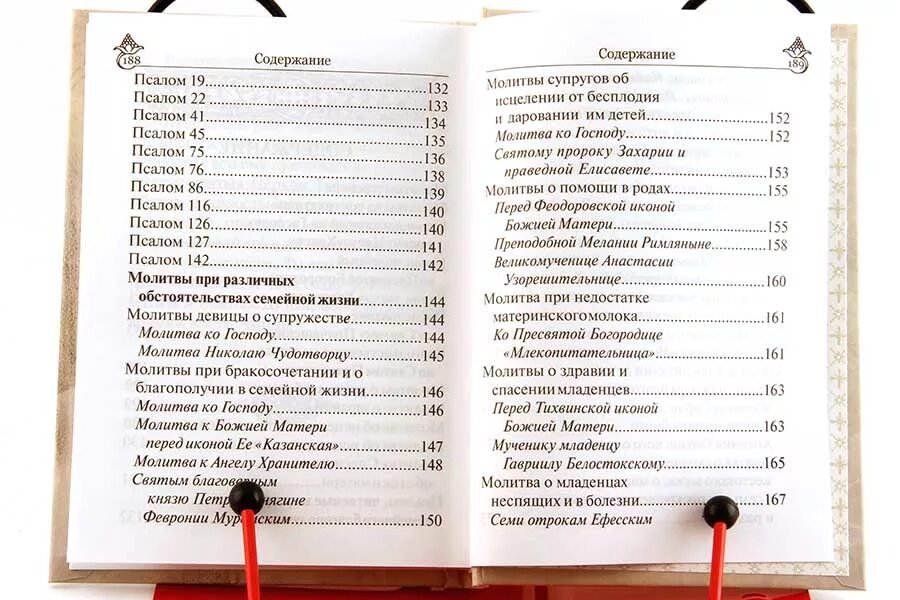 188
Содержание
Псалом 19 132
Псалом 22 133
Псалом 41 134
Псалом 45 135
Псалом 75 136
Псалом 76 138
Псалом 86 139
Псалом 116 140
Псалом 126 140
Псалом 127 141
Псалом 142 142
Молитвы при различных
обстоятельствах семейной жизни 144
Молитвы девицы о супружестве 144
Молитва ко Господу 144
Молитва Николаю Чудотворцу 145
Молитвы при бракосочетании и о
благополучии в семейной жизни 146
Молитва ко Господу 146
Молитва к Божией Матери
перед иконой Ее «Казанская» 147
Молитва к Ангелу Хранителю 148
Святым благоверным
князю
Февронии 150
Содержание
189
Молитвы супругов об
исцелении от бесплодия
и даровании им детей 152
Молитва ко Господу 152
Святому пророку Захарии и
праведной Елисавете 153
Молитвы о помощи в родах 155
Перед Феодоровской иконой
Божией Матери 155
Преподобной Мелании Римляныне 158
Великомученице Анастасии
Узорешительнице 160
Молитва при недостатке
материнского молока 161
Ко Пресвятой Богородице
«Млекопитательница» 161
Молитвы о здравии и
спасении младенцев 163
Перед Тихвинской иконой
Божией Матери 163
Мученику младенцу
Гавриилу Белостокскому 165
Молитва о младенцах
неспящих и в болезни 167
Семи отрокам Ефесским